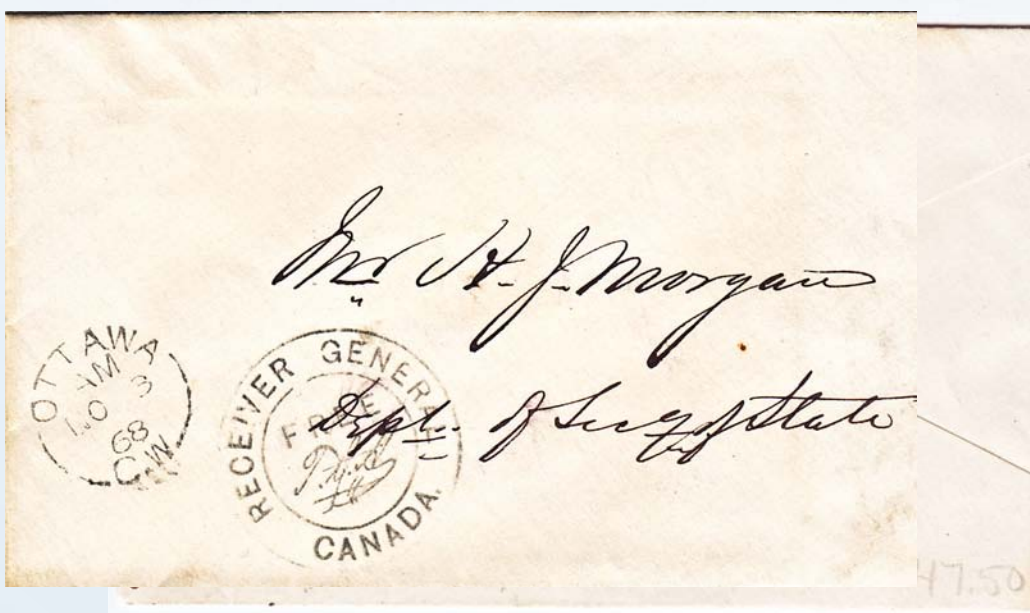 Mr H. J. Morgan
Dept. of Secy of State
OTTAWA
AM
NO 3
68
C.W
RECEIVER GENERAL
FREE
CANADA.
47.50